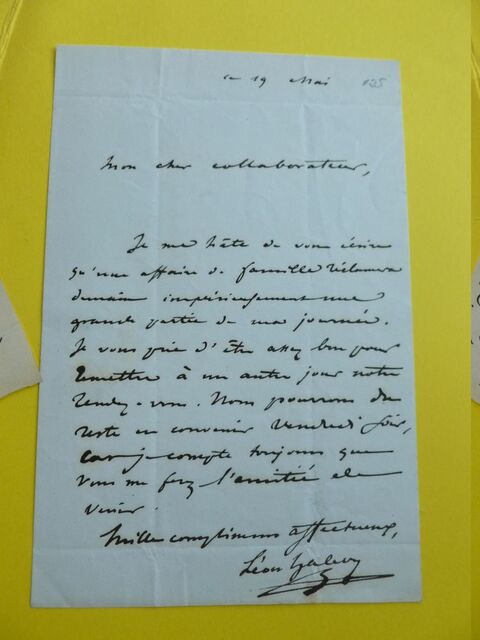 ce 19 Mai
125
Mon cher collaborateur,
Je me hâte de vous écrire
qu'une affaire de famille réclamera
demain impérieusement une
grande partie de ma journée.
Je vous prie d'être assez bon pour
remettre à un autre jour notre
rendez-vous. Nous pourrons du
reste en convenir vendredi soir,
car je compte toujours que
vous me ferez l'amitié de
venir.
Mille complimens affectueux,
Léon Halévy